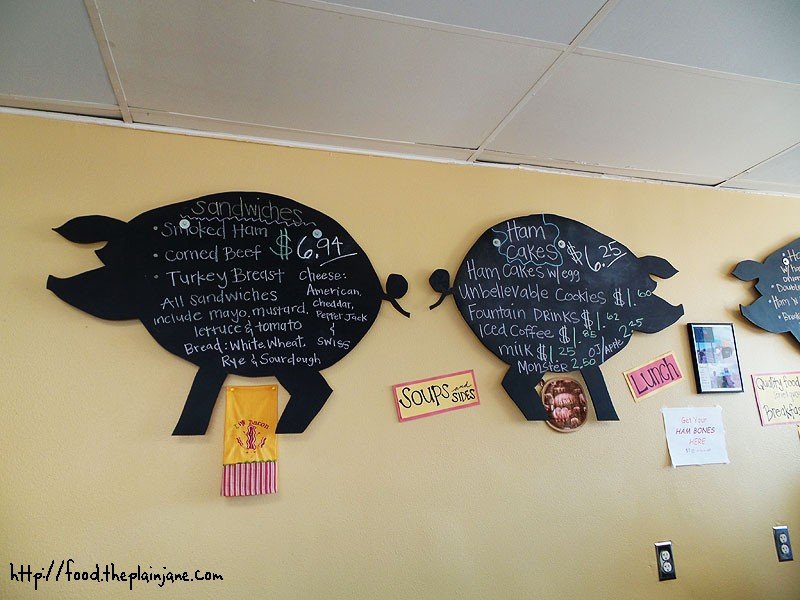 Sandwiches
• Smoked Ham
• Corned Beef
• Turkey Breast
$6.94
All sandwiches
include mayo, mustard,
lettuce & tomato
Bread: White, Wheat,
Rye & Sourdough
Cheese:
American,
Cheddar,
Pepper Jack
&
Swiss
Ham
Cakes $6.25
Ham Cakes w/egg
Unbelievable Cookies $1.60
Fountain Drinks $1.62
Iced Coffee $1.85
milk $1.25 OJ/Apple 2.25
Monster 2.50
Soups and
Sides
Lunch
Bacon
Get Your
HAM BONES
HERE
Quality food
Breakfast
http://food.theplainjane.com